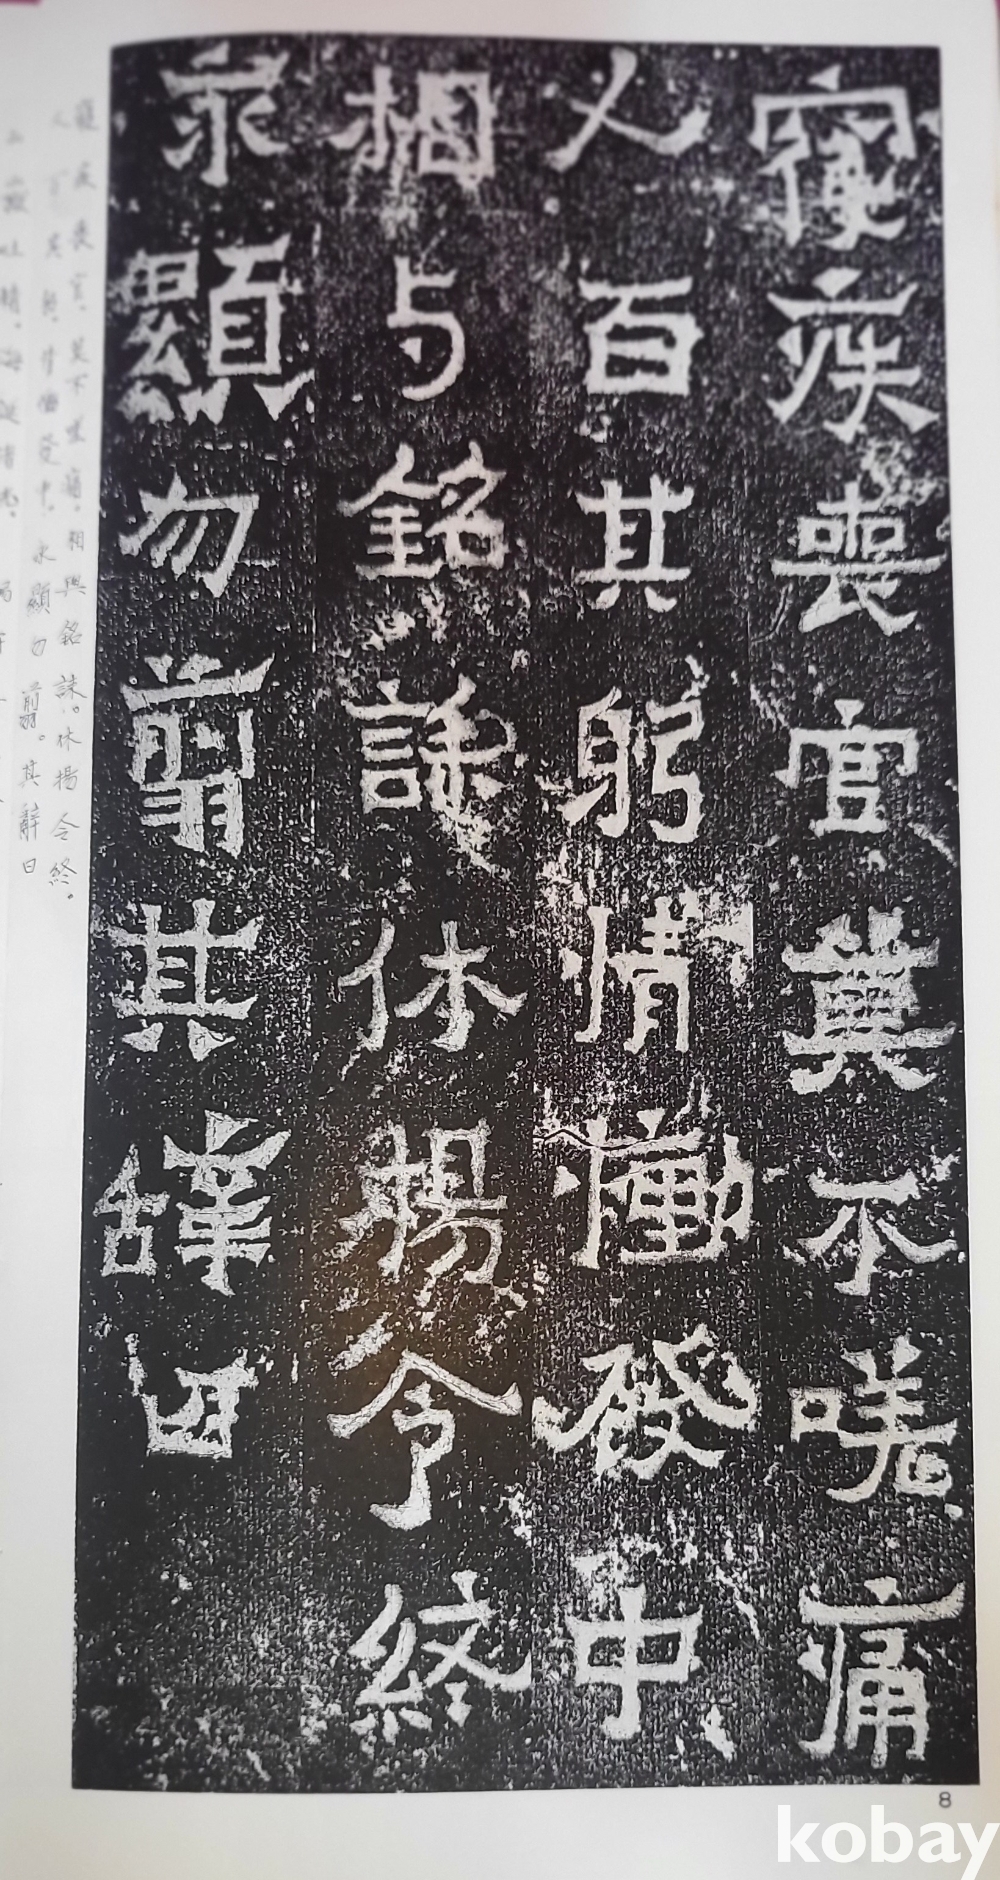 寑疾喪官莫不嗟痛
人百其躬情慟發中
相与銘誄休揚令終
永顯勿翦其辭曰
寢疾喪官. 莫不嗟痛. 相與銘誄。休揚令終。
人百其躬. 情慟發中. 永顯勿翦。其辭曰
吐精.
8
kobay